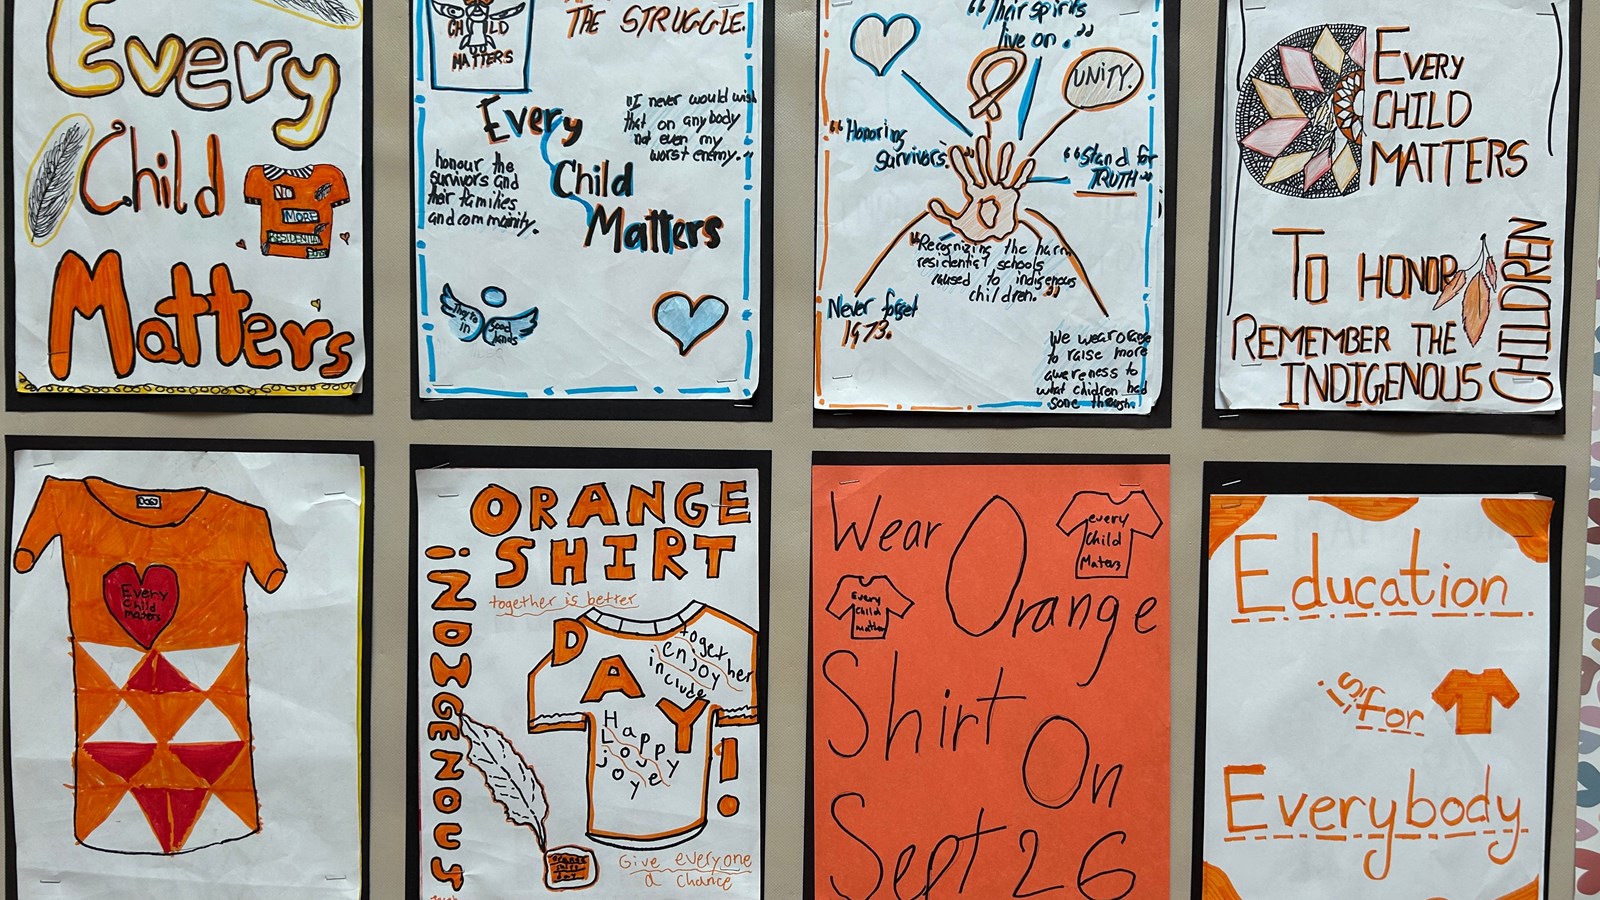 Every
Child
Matters
NO
MORE
RESIDENTIAL
CHILD
MATTERS
THE STRUGGLE.
Every
Child
Matters
"I never would wish
that on anybody
not even my
worst enemy."
honour the
survivors and
their families
and community.
in
Good
hands
"Their spirits
live on."
UNITY.
"Honoring
survivors."
"Stand for
TRUTH"
"Recognizing the harm
residential schools
caused to indigenous
children."
Never forget
1973.
We wear orange
to raise more
awareness to
what children had
gone through.
EVERY
CHILD
MATTERS
TO HONOR
REMEMBER THE
INDIGENOUS
CHILDREN
Every
Child
matters
ORANGE
SHIRT
together is better
DAY!
iNDiGENOUS
together
enjoy
include
Happy
Love
joy
orange
Give everyone
a chance
Wear Orange
Shirt On
Sept 26
every
Child
Maters
Every
Child
Education
is for
Everybody